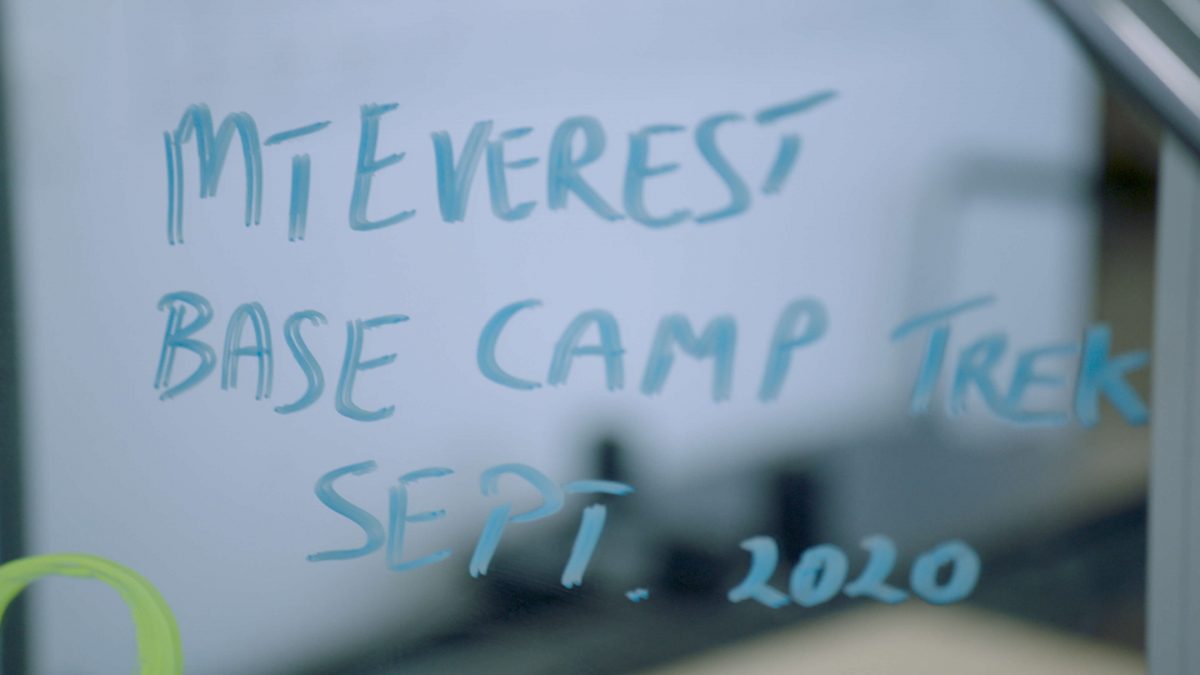 MT EVEREST
BASE CAMP TREK
SEPT. 2020